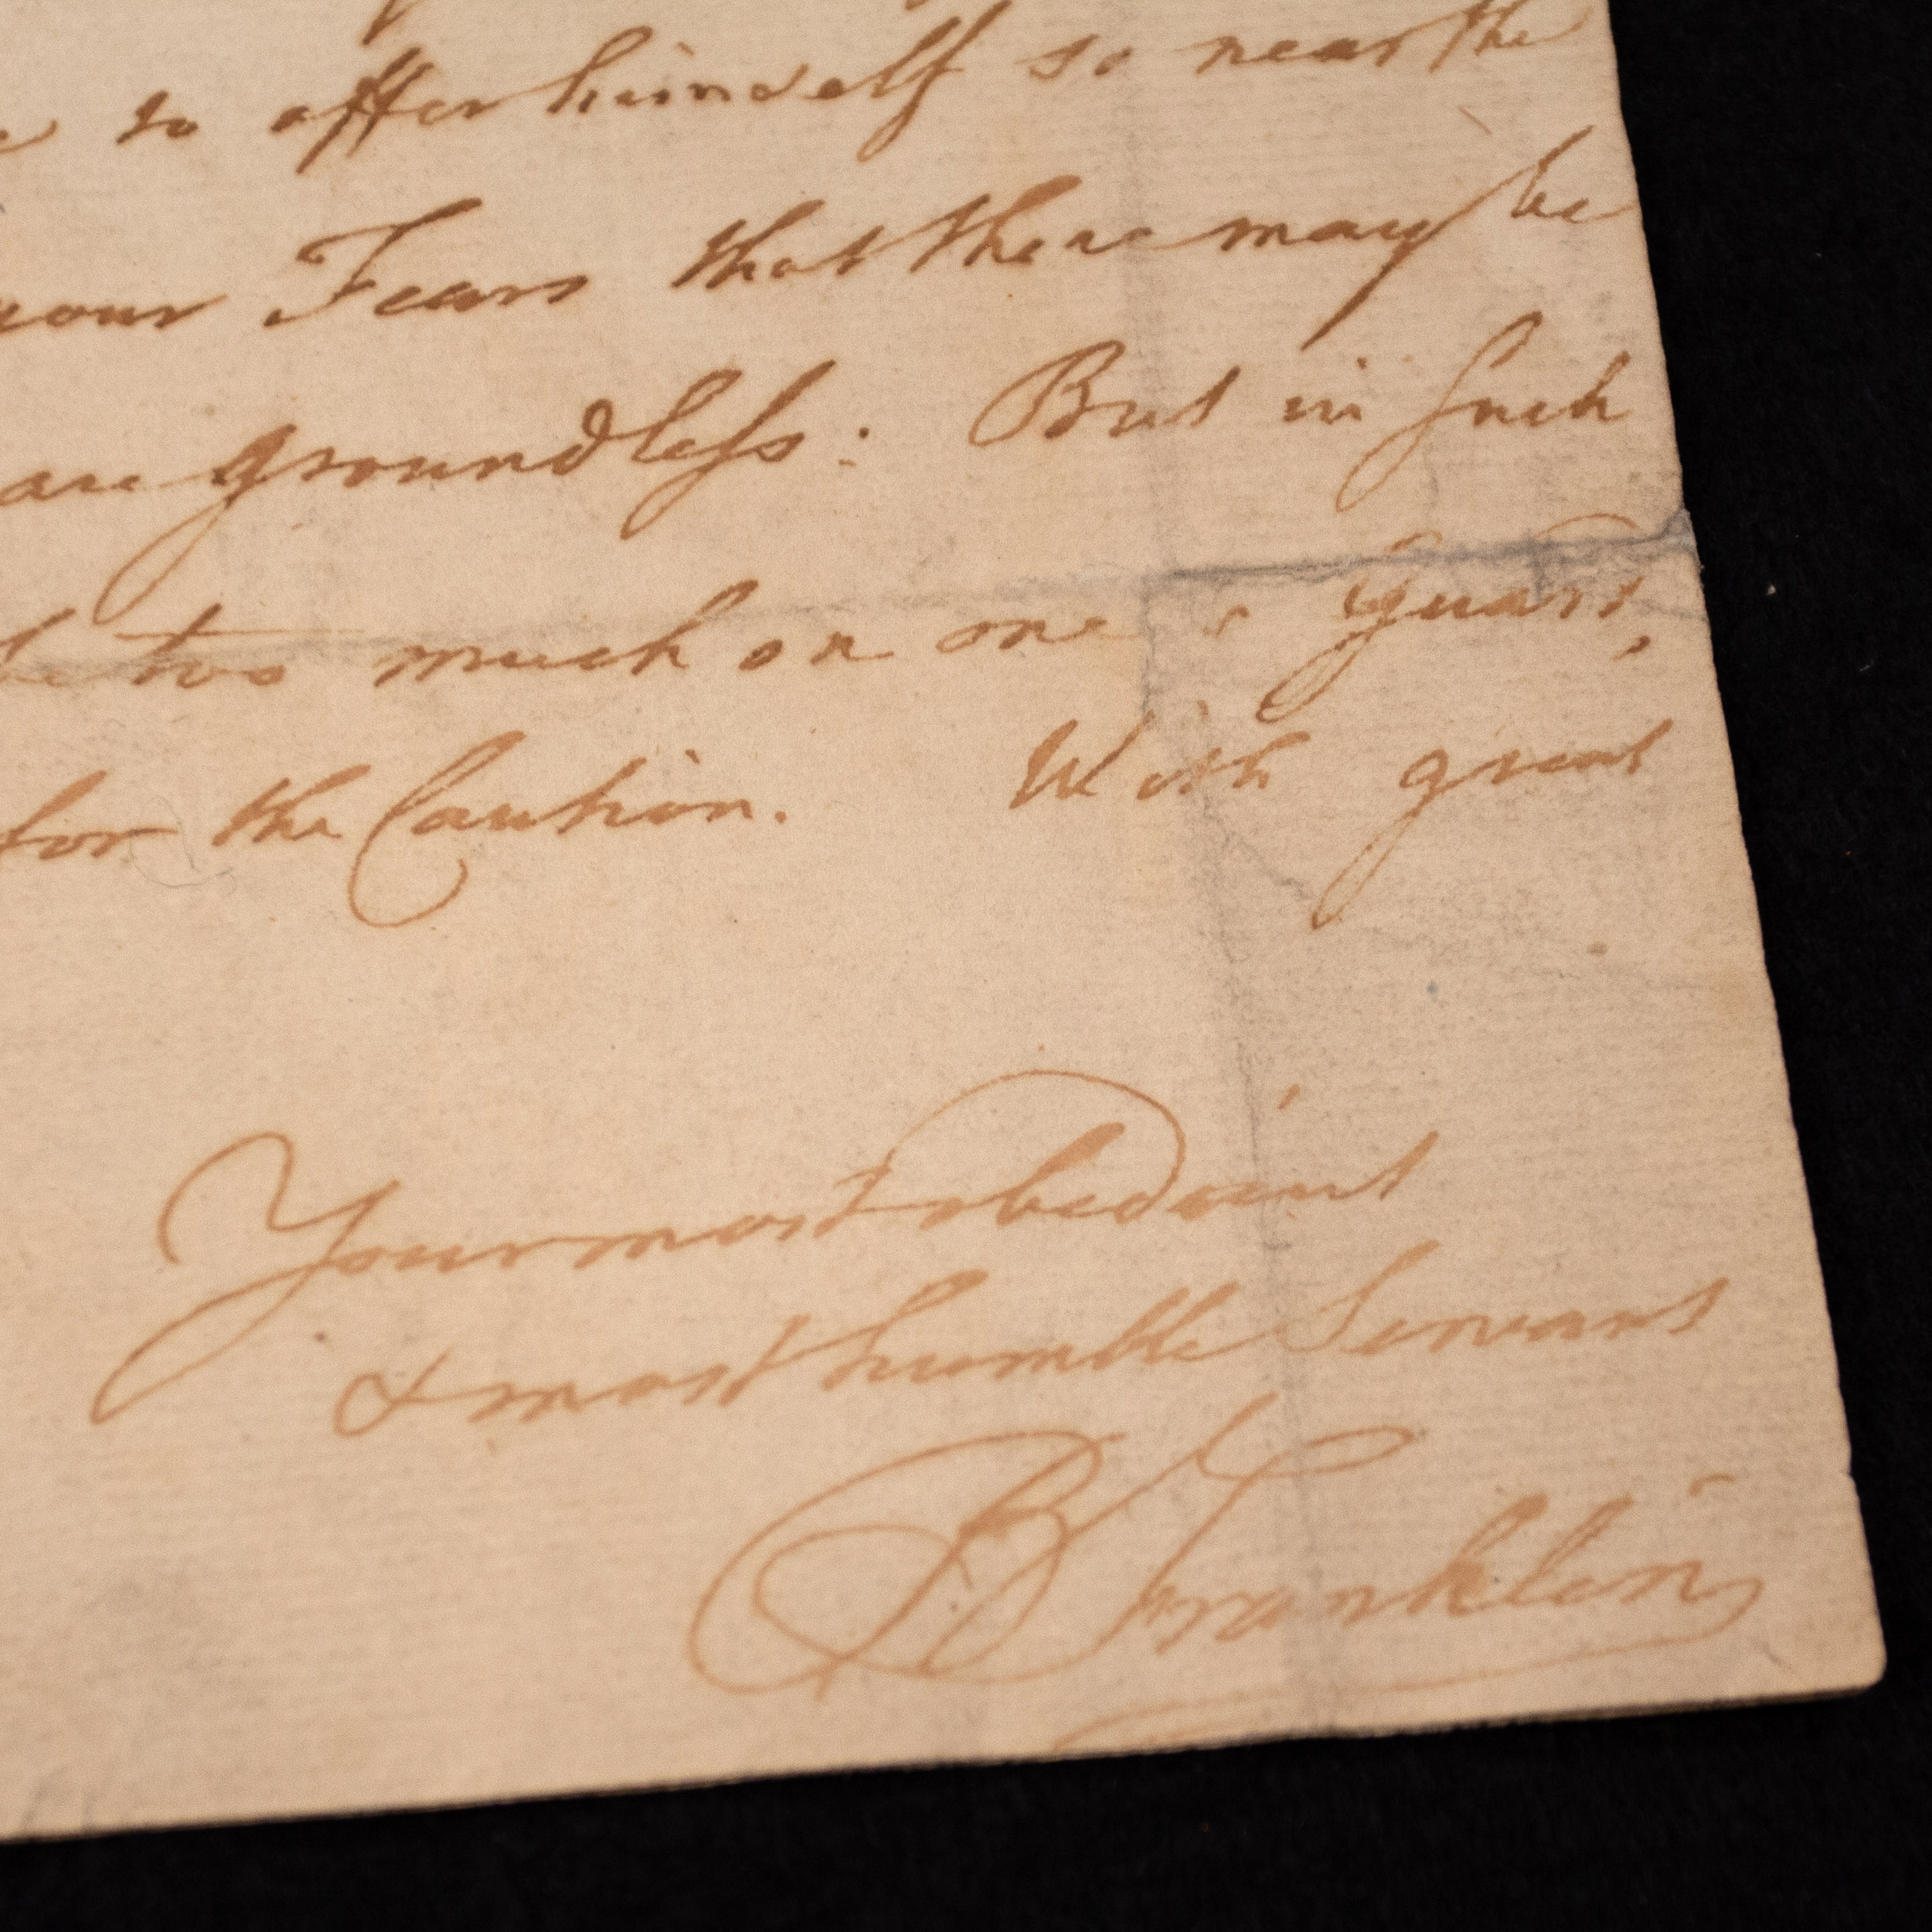 to offer himself so near the
your Fears that there may be
are groundless: But in such
be too much on one's Guard,
for the Caution. With great
Your most obedient
& most humble Servant
B Franklin